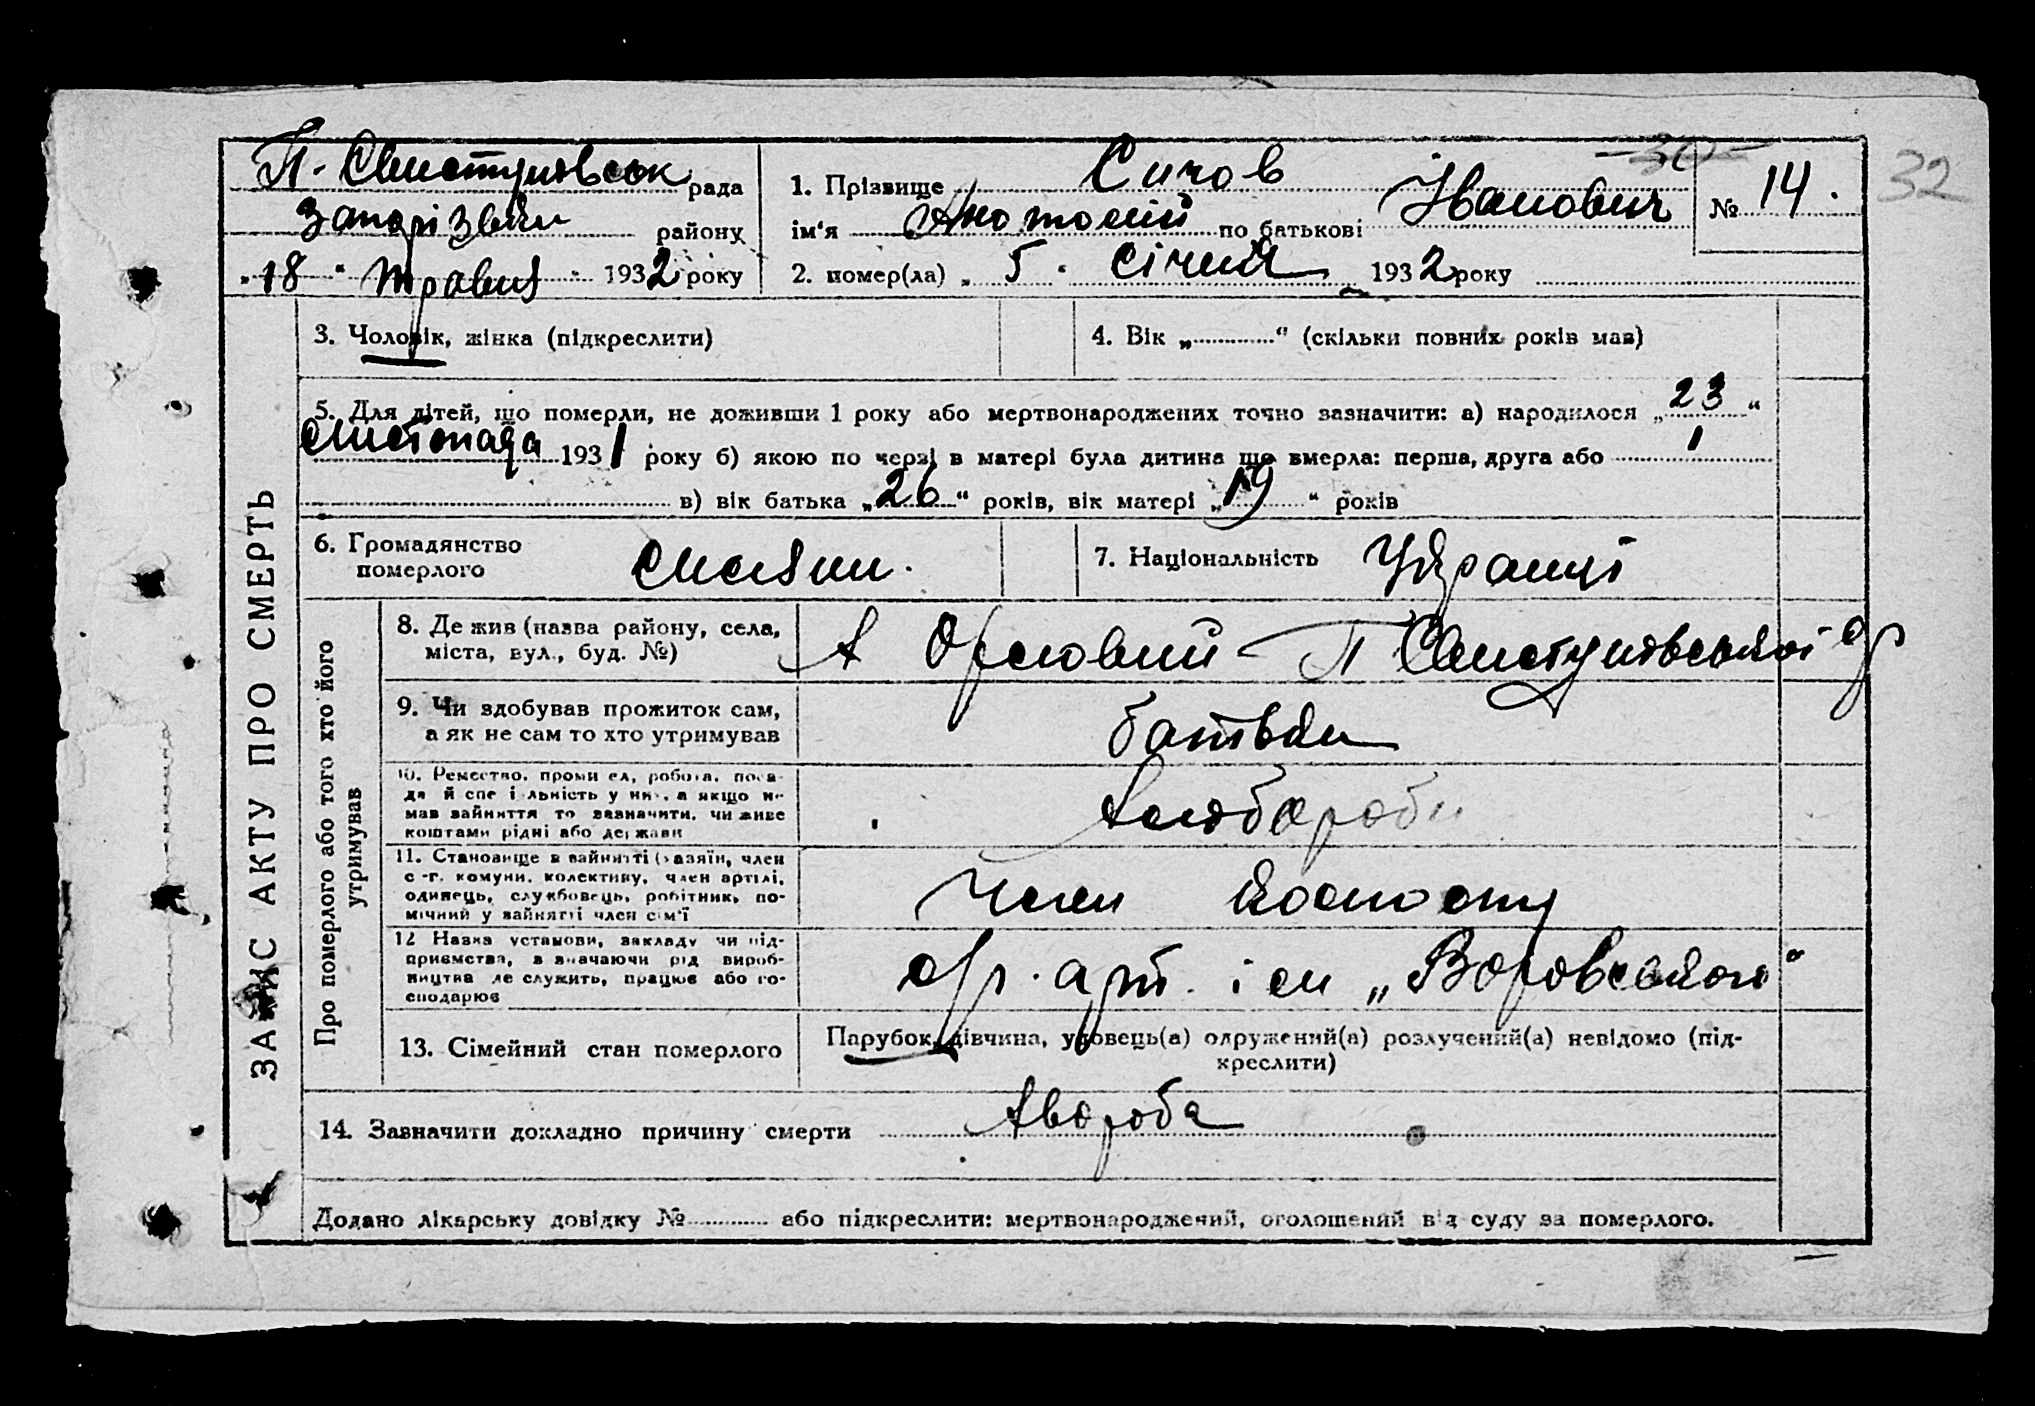 П. Свистунівськ рада
Запорізький району
„18“ травня 1932 року
1. Прізвище Сичов
ім'я Анатолій по батькові Іванович
2. помер(ла) „5“ січня 1932 року
30
№ 14.
32
ЗАПИС АКТУ ПРО СМЕРТЬ
3. Чоловік, жінка (підкреслити)
4. Вік „............“ (скільки повних років мав)
5. Для дітей, що померли, не доживши 1 року або мертвонароджених точно зазначити: а) народилося „23“
листопада 1931 року б) якою по черзі в матері була дитина що вмерла: перша, друга або 1
в) вік батька „26“ років, вік матері „19“ років
6. Громадянство
померлого
7. Національність Украінці
Про померлого або того хто його
утримував
8. Де жив (назва району, села,
міста, вул., буд. №)
Орловий П Свистунівської
9. Чи здобував прожиток сам,
а як не сам то хто утримував
батьки
10. Ремество, промисел, робота, поса-
да й спеціальність у них, а якщо не
мав зайняття то зазначити, чи живе
коштами рідні або держави
хлібороби
11. Становище в зайнятті (хазяїн, член
с.-г. комуни, колективу, член артілі,
одинець, службовець, робітник, по-
мічний у зайнятті член сім'ї
Член колгоспу
12 Назва установи, закладу чи під-
приємства, зазначаючи рід вироб-
ництва де служить, працює або го-
сподарює
арт. ім „Воровського“
13. Сімейний стан померлого
Парубок, дівчина, удовець(а) одружений(а) розлучений(а) невідомо (під-
креслити)
14. Зазначити докладно причину смерти хвороба
Додано лікарську довідку №............ або підкреслити: мертвонароджений, оголошений від суду за померлого.